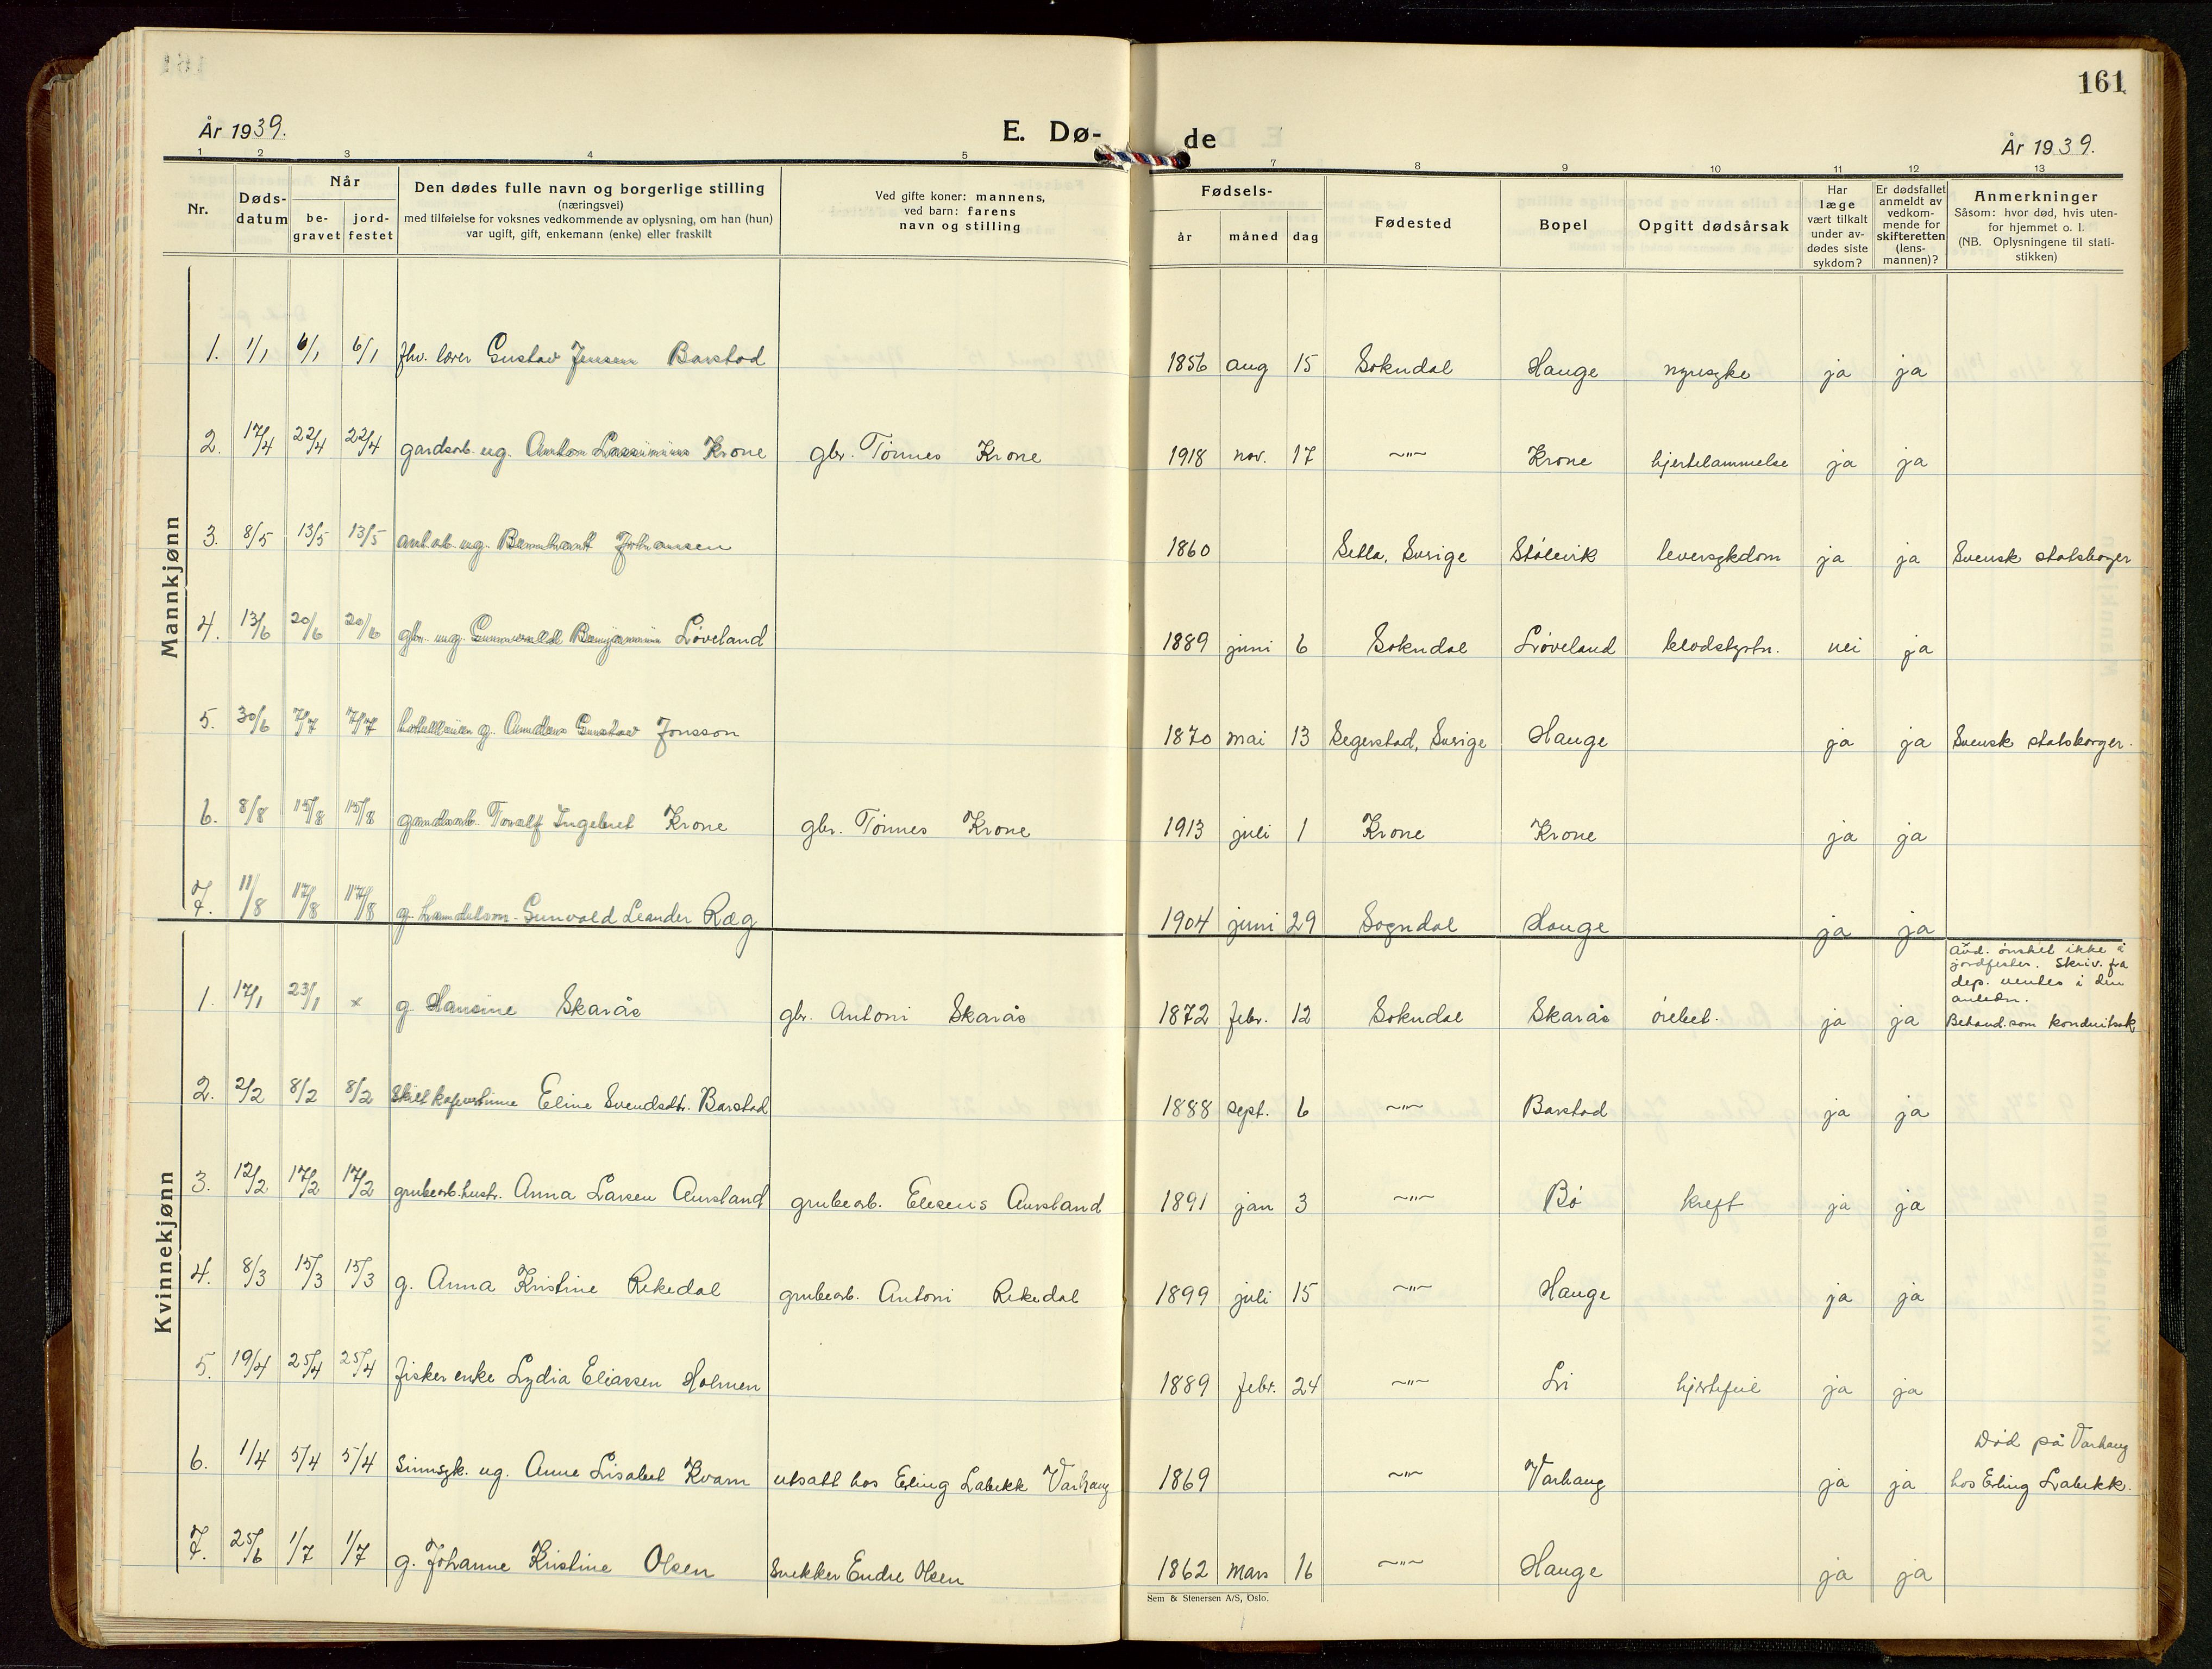 161
År 1939.
E. Dø-
de
År 1939.
1 2 3 4 5
7 8 9 10 11 12 13
Nr.
Døds-
datum
Når
be-
gravet
jord-
festet
Den dødes fulle navn og borgerlige stilling
(næringsvei)
med tilføielse for voksnes vedkommende av oplysning, om han (hun)
var ugift, gift, enkemann (enke) eller fraskilt
Ved gifte koner: mannens,
ved barn: farens
navn og stilling
Fødsels-
år måned dag
Fødested
Bopel
Opgitt dødsårsak
Har
læge
vært tilkalt
under av-
dødes siste
sykdom?
Er dødsfallet
anmeldt av
vedkom-
mende for
skifteretten
(lens-
mannen)?
Anmerkninger
Såsom: hvor død, hvis uten-
for hjemmet o. l.
(NB. Oplysningene til stati-
stikken)
Mannkjønn
1. 1/1 6/1 6/1 fhv. lærer Gustav Jensen Barstad 1856 aug 15 Sokndal Hauge nyresyke ja ja
2. 17/4 22/4 22/4 gardsarb. ug. Anton Krone gbr. Tønnes Krone 1918 nov. 17 -"- Krone hjertelammelse ja ja
3. 8/5 13/5 13/5 ug. Johansen 1860 Sverige Stølevik leversykdom ja ja Svensk statsborger
4. 13/6 20/6 20/6 gbr. ug. Benjamin Løveland 1889 juni 6 Sokndal Løveland blodstyrtn. nei ja
5. 30/6 7/7 7/7 g. Anders Gustav Jonsson 1870 mai 13 Segerstad, Sverige Hauge ja ja Svensk statsborger.
6. 8/8 15/8 15/8 gardsarb. Toralf Ingebret Krone gbr. Tønnes Krone 1913 juli 1 Krone Krone ja ja
7. 11/8 17/8 17/8 g. Gunvald Leander Ræg 1904 juni 29 Sogndal Hauge ja ja
Kvinnekjønn
Avd. ønsket ikke å
jordfestes. Skriv. fra
dep. ventes i den
anledn.
1. 17/1 23/1 x g. Hansine Skarås gbr. Antoni Skarås 1872 febr. 12 Sokndal Skarås ja ja Behand. som konduitsak
2. 2/2 8/2 8/2 Eline Svendsdtr. Barstad 1888 sept. 6 -"- Barstad ja ja
3. 12/2 17/2 17/2 grubearb. hustr. Anna Larsen Aursland grubearb. Elesens Aursland 1891 jan 3 -"- Bø kreft ja ja
4. 8/3 15/3 15/3 g. Anna Kristine Rekedal grubearb. Antoni Rekedal 1899 juli 15 -"- Hauge ja ja
5. 19/4 25/4 25/4 fisker enke Lydia Eliassen Holmen 1889 febr. 24 -"- Li hjertefeil ja ja
Død på Varhaug
6. 1/4 5/4 5/4 sinnsyk. ug. Anne Lisabet Kvam utsatt hos Erling Labekk Varhaug 1869 -"- Varhaug ja ja hos Erling Labekk.
7. 25/6 1/7 1/7 g. Johanne Kristine Olsen Snekker Endre Olsen 1862 mars 16 -"- Hauge ja ja
Sem & Stenersen A/S, Oslo.